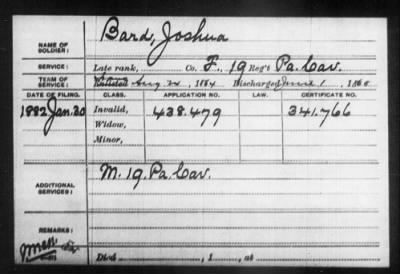 NAME OF SOLDIER: Bard, Joshua
SERVICE: Late rank, Co. F., 19 Reg't Pa. Cav.
TERM OF SERVICE: Enlisted Aug 24, 1864 Discharged June 1, 1865
DATE OF FILING. CLASS. APPLICATION NO. LAW. CERTIFICATE NO.
1882 Jan. 30 Invalid, 438.479 341.766
Widow,
Minor,
ADDITIONAL SERVICES: M. 19. Pa. Cav.
REMARKS:
Died , 1 , at